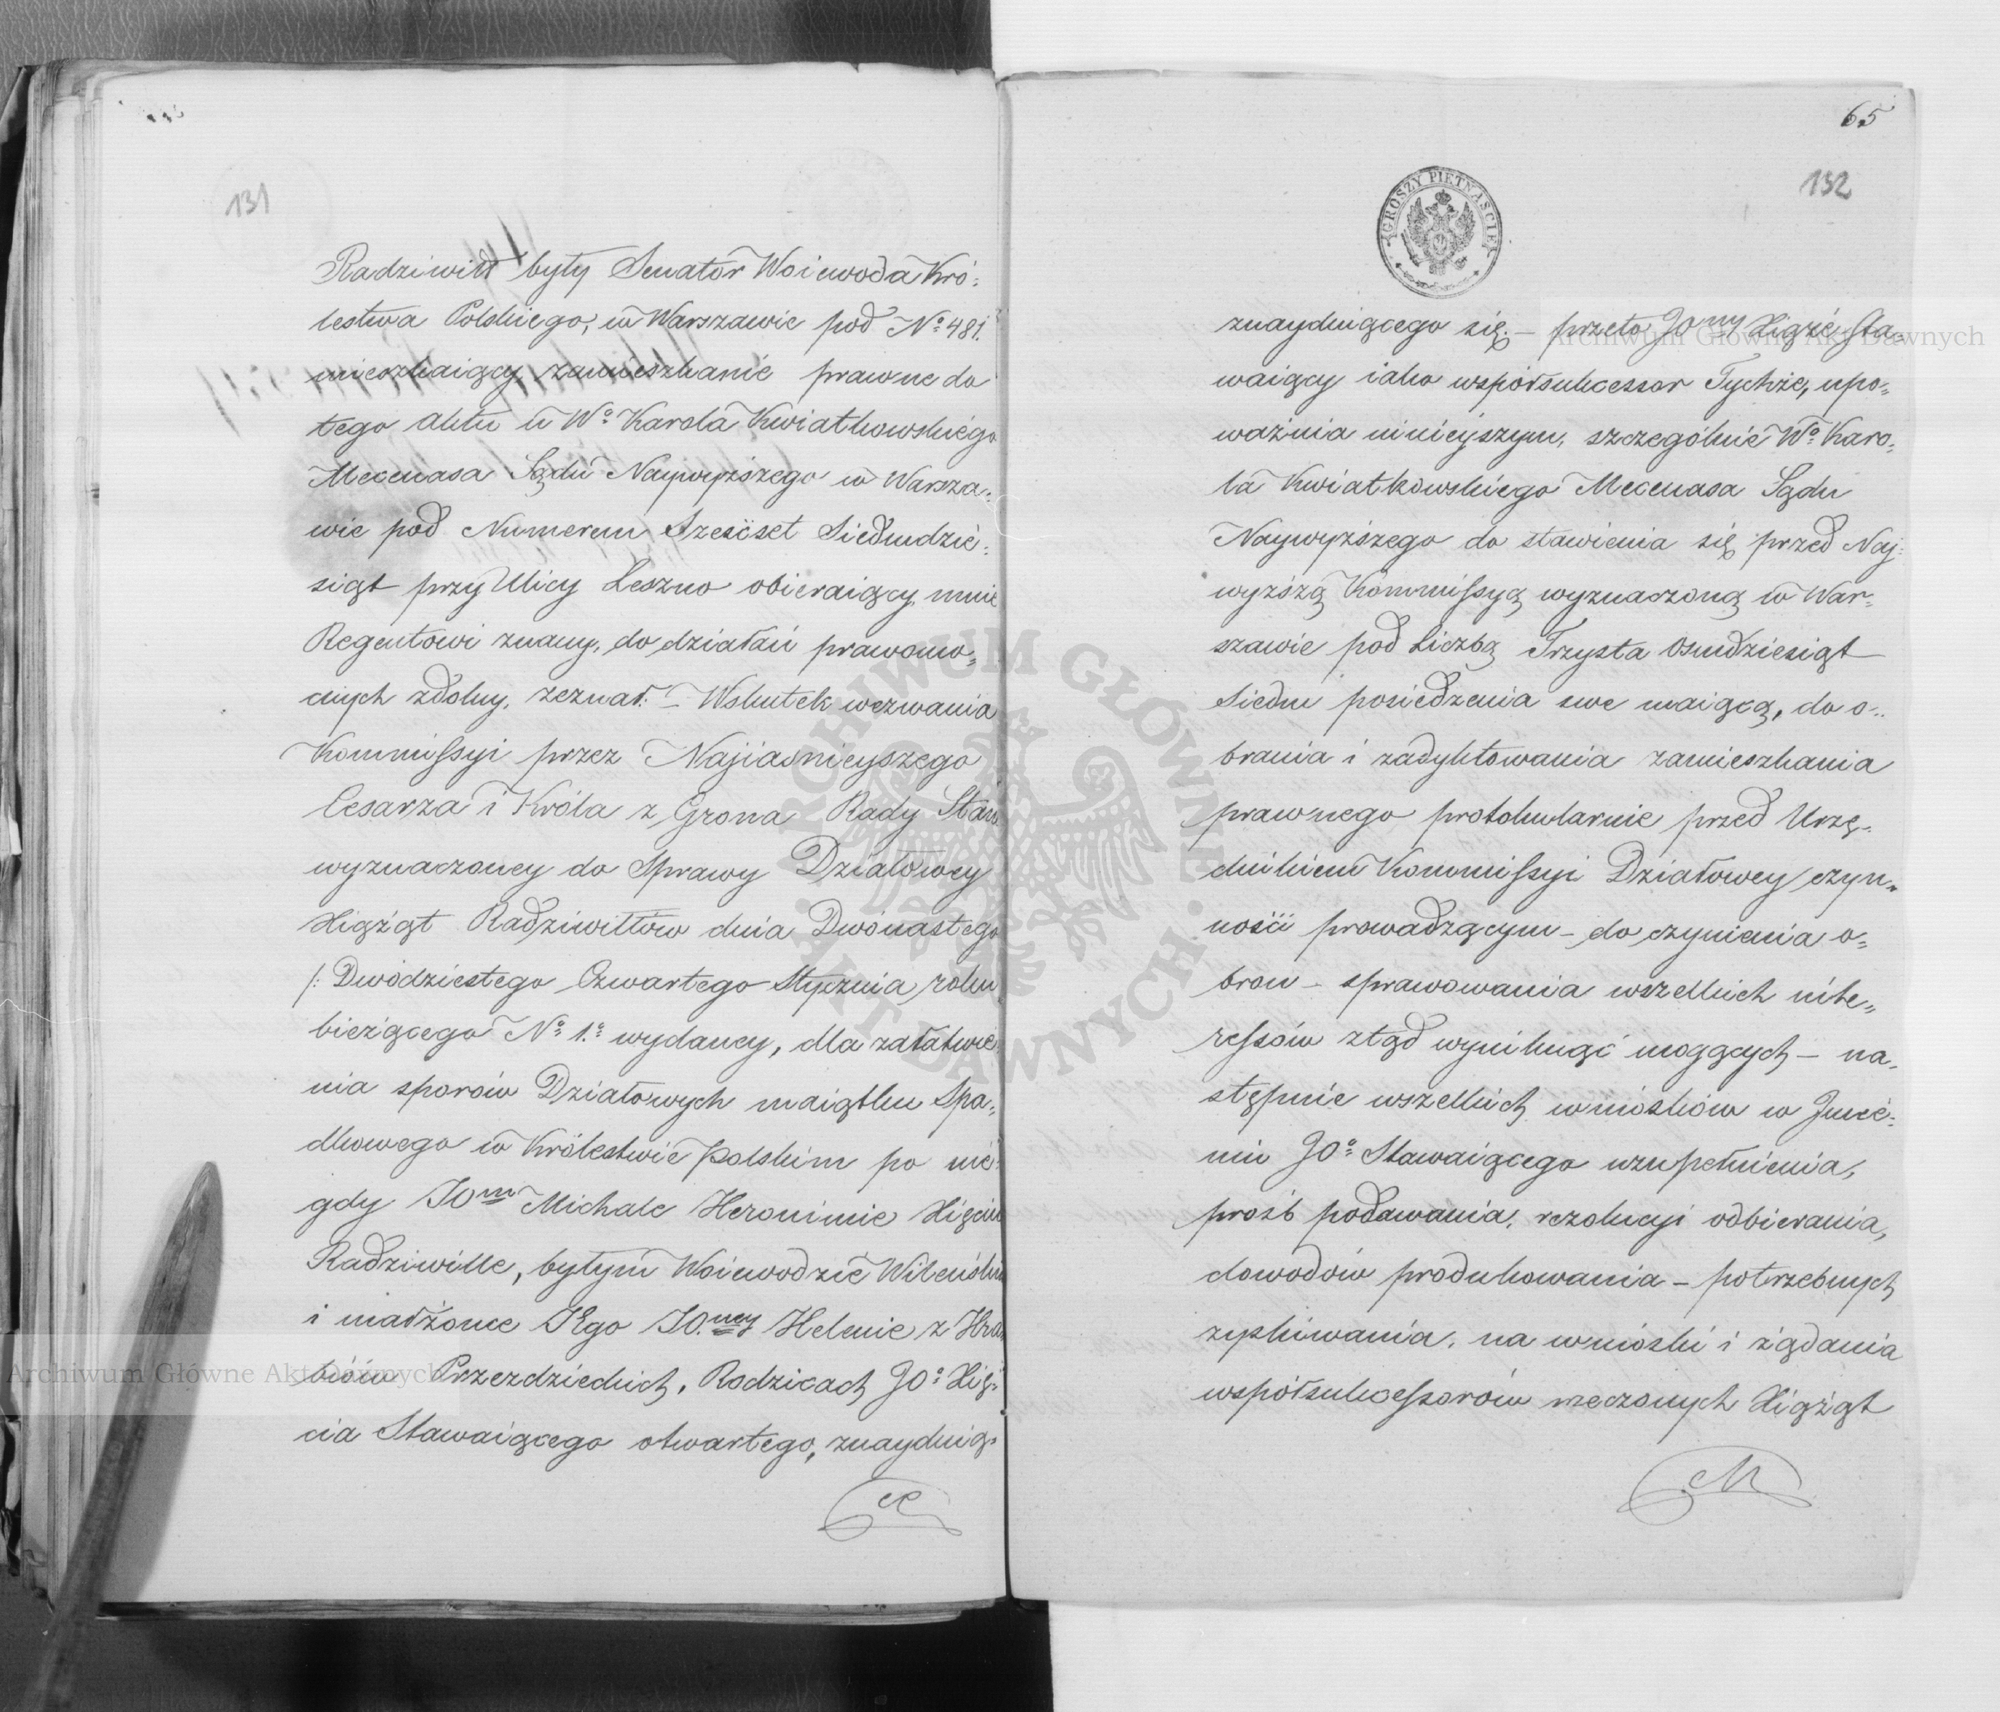 131
Radziwiłł były Senator Woiewoda Kró=
lestwa Polskiego, w Warszawie pod No 481.
mieszkaiący, zamieszkanie prawne do
tego Aktu u Wo Karola Kwiatkowskiego
Mecenasa Sądu Naywyższego w Warsza=
wie pod Numerem Sześćset Siedmdzie=
siąt przy Ulicy Leszno obieraiący, mnie
Regentowi znany, do działań prawomo=
cnych zdolny, zeznał. – Wskutek wezwania
Kommissyi przez Najiaśnieyszego
Cesarza i Króla z Grona Rady Stanu
wyznaczoney do Sprawy Działowey
Xiążąt Radziwiłłów dnia Dwónastego
/: Dwódziestego Czwartego Stycznia roku
bieżącego No 1.o wydaney, dla załatwie=
nia sporów Działowych maiątku Spa=
dkowego w Królestwie Polskim po nie=
gdy JOm Michale Heronimie Xięciu
Radziwille, byłym Woiewodzie Wileńskim
i małżonce Jego JO.ney Helenie z Hra=
biów Przezdzieckich, Rodzicach JOo Xię=
cia Stawaiącego otwartego, znayduią=
65
152
GROSZY PIĘTNAŚCIE
znayduiącego się. – przeto JOny Xiąże Sta=
waiący iako współsukcessor Tychże, upo=
ważnia ninieyszym, szczególnie Wo Karo=
la Kwiatkowskiego Mecenasa Sądu
Naywyższego do stawienia się przed Naj=
wyższą Kommissyą wyznaczoną w War=
szawie pod Liczbą Trzysta Osmdziesiąt
Siedm posiedzenia swe maiącą, do o=
brania i zadyktowania zamieszkania
prawnego protokularnie przed Urzę=
dnikiem Kommissyi Działowey czyn=
ności prowadzącym – do czynienia o=
bron – sprawowania wszelkich inte=
ressów ztąd wyniknąć mogących – na=
stępnie wszelkich wniosków w Jmie=
niu JOo Stawaiącego uzupełnienia,
prośb podawania, rezolucyi odbierania,
dowodów produkowania – potrzebnych
zyskiwania, na wnioski i żądania
współsukcessorów rzeczonych Xiążąt
Archiwum Główne Akt Dawnych
Archiwum Główne Akt Dawnych
ARCHIWUM GŁÓWNE AKT DAWNYCH